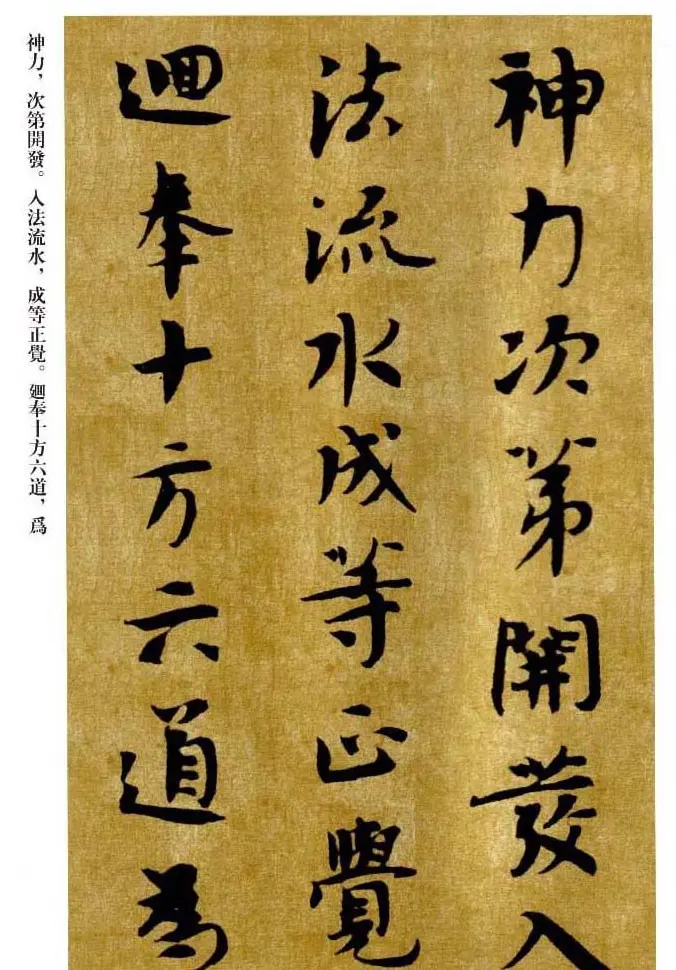 神力次第開發入
法流水成等正覺
迴奉十方六道為
神力，次第開發。入法流水，成等正覺。迴奉十方六道，爲